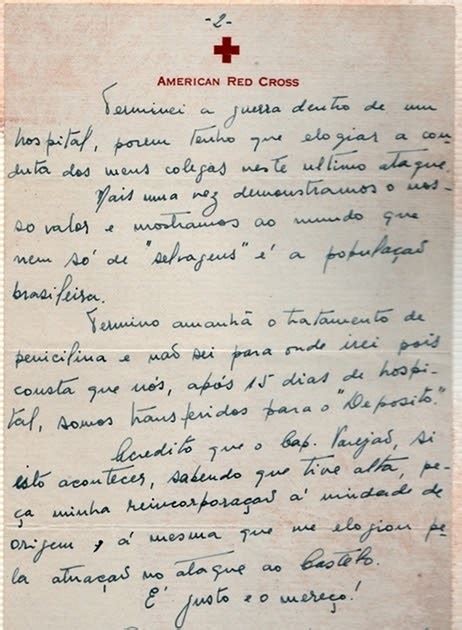 -2-
AMERICAN RED CROSS
Terminei a guerra dentro de um
hospital, porem tenho que elogiar a con-
duta dos meus colegas neste ultimo ataque.
Mais uma vez demonstramos o nos-
so valor e mostramos ao mundo que
nem só de "selvagens" é a população
brasileira.
Termino amanhã o tratamento de
penicilina e não sei para onde irei pois
consta que nós, após 15 dias de hospi-
tal, somos transferidos para o "Deposito".
Acredito que o Cap. Varejão, si
isto acontecer, sabendo que tive alta, pe-
ça minha reincorporação á unidade de
origem, á mesma que me elogiou pe-
la atuação no ataque ao Castelo.
É justo e o mereço!